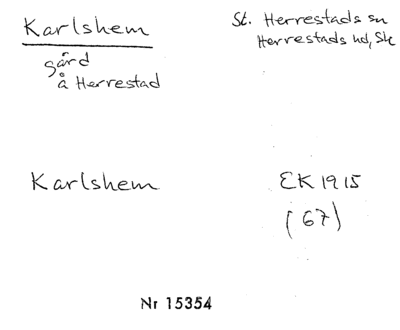 Karlshem
St. Herrestads sn
Herrestads hd, Sk
gård
å Herrestad
Karlshem
EK 1915
(67)
Nr 15354